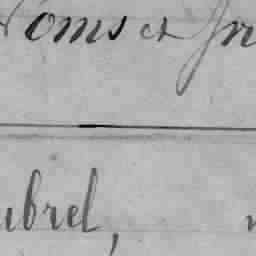 Noms et Pr
ubrel,